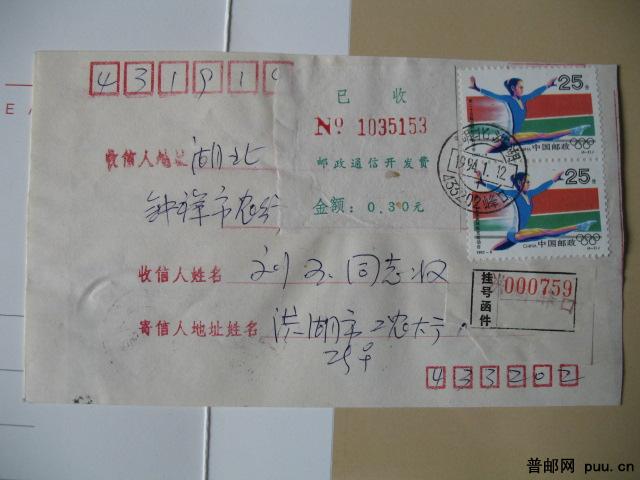 43191
已 收
№ 1035153
邮政通信开发费
金额：0.30元
25分
CHINA 中国邮政
25分
CHINA 中国邮政
1994.1.12
433202
收信人地址 湖北
钟祥市农
收信人姓名 刘 同志收
挂号函件 000759
寄信人地址姓名 洪湖市工农大
25号
433202
普邮网 puu.cn